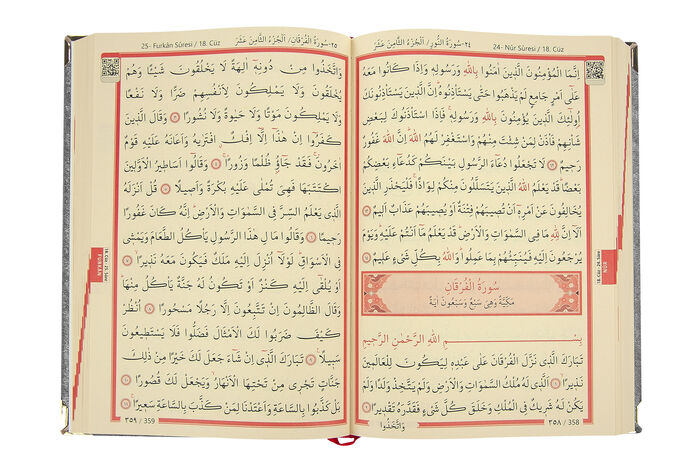 24- Nûr Sûresi / 18. Cüz
٢٤-سُورَةُ النُّورِ / اَلْجُزْءُ الثَّامِنَ عَشَرَ
اِنَّمَا الْمُؤْمِنُونَ الَّذ۪ينَ اٰمَنُوا بِاللّٰهِ وَرَسُولِه۪ وَاِذَا كَانُوا مَعَهُ
عَلٰٓى اَمْرٍ جَامِعٍ لَمْ يَذْهَبُوا حَتّٰى يَسْتَأْذِنُوهُۜ اِنَّ الَّذ۪ينَ يَسْتَأْذِنُونَكَ
اُو۬لٰٓئِكَ الَّذ۪ينَ يُؤْمِنُونَ بِاللّٰهِ وَرَسُولِه۪ۚ فَاِذَا اسْتَأْذَنُوكَ لِبَعْضِ
شَأْنِهِمْ فَأْذَنْ لِمَنْ شِئْتَ مِنْهُمْ وَاسْتَغْفِرْ لَهُمُ اللّٰهَۜ اِنَّ اللّٰهَ غَفُورٌ
رَح۪يمٌ ﴿٦٢﴾ لَا تَجْعَلُوا دُعَٓاءَ الرَّسُولِ بَيْنَكُمْ كَدُعَٓاءِ بَعْضِكُمْ
بَعْضًاۜ قَدْ يَعْلَمُ اللّٰهُ الَّذ۪ينَ يَتَسَلَّلُونَ مِنْكُمْ لِوَاذًاۚ فَلْيَحْذَرِ الَّذ۪ينَ
يُخَالِفُونَ عَنْ اَمْرِه۪ٓ اَنْ تُص۪يبَهُمْ فِتْنَةٌ اَوْ يُص۪يبَهُمْ عَذَابٌ اَل۪يمٌ ﴿٦٣﴾
اَلَٓا اِنَّ لِلّٰهِ مَا فِي السَّمٰوَاتِ وَالْاَرْضِۜ قَدْ يَعْلَمُ مَٓا اَنْتُمْ عَلَيْهِۜ وَيَوْمَ
يُرْجَعُونَ اِلَيْهِ فَيُنَبِّئُهُمْ بِمَا عَمِلُواۜ وَاللّٰهُ بِكُلِّ شَيْءٍ عَل۪يمٌ ﴿٦٤﴾
سُورَةُ الْفُرْقَانِ
مَكِّيَّةٌ وَهِيَ سَبْعٌ وَسَبْعُونَ اٰيَةً
بِسْـــمِ اللّٰهِ الرَّحْمٰنِ الرَّح۪يمِ
تَبَارَكَ الَّذ۪ي نَزَّلَ الْفُرْقَانَ عَلٰى عَبْدِه۪ لِيَكُونَ لِلْعَالَم۪ينَ
نَذ۪يرًاۙ ﴿١﴾ اَلَّذ۪ي لَهُ مُلْكُ السَّمٰوَاتِ وَالْاَرْضِ وَلَمْ يَتَّخِذْ وَلَدًا وَلَمْ
يَكُنْ لَهُ شَر۪يكٌ فِي الْمُلْكِ وَخَلَقَ كُلَّ شَيْءٍ فَقَدَّرَهُ تَقْد۪يرًا ﴿٢﴾
وَاتَّخَذُوا
٣٥٨ / 358
18. Cüz - 24. Sûre
NÛR
25- Furkân Sûresi / 18. Cüz
٢٥-سُورَةُ الْفُرْقَانِ / اَلْجُزْءُ الثَّامِنَ عَشَرَ
وَاتَّخَذُوا مِنْ دُونِه۪ٓ اٰلِهَةً لَا يَخْلُقُونَ شَيْـًٔا وَهُمْ
يُخْلَقُونَ وَلَا يَمْلِكُونَ لِاَنْفُسِهِمْ ضَرًّا وَلَا نَفْعًا
وَلَا يَمْلِكُونَ مَوْتًا وَلَا حَيٰوةً وَلَا نُشُورًا ﴿٣﴾ وَقَالَ الَّذ۪ينَ
كَفَرُٓوا اِنْ هٰذَٓا اِلَّٓا اِفْكٌۨ افْتَرٰيهُ وَاَعَانَهُ عَلَيْهِ قَوْمٌ
اٰخَرُونَۚ فَقَدْ جَٓاؤُ۫ ظُلْمًا وَزُورًاۚ ﴿٤﴾ وَقَالُٓوا اَسَاط۪يرُ الْاَوَّل۪ينَ
اكْتَتَبَهَا فَهِيَ تُمْلٰى عَلَيْهِ بُكْرَةً وَاَص۪يلًا ﴿٥﴾ قُلْ اَنْزَلَهُ
الَّذ۪ي يَعْلَمُ السِّرَّ فِي السَّمٰوَاتِ وَالْاَرْضِۜ اِنَّهُ كَانَ غَفُورًا
رَح۪يمًا ﴿٦﴾ وَقَالُوا مَالِ هٰذَا الرَّسُولِ يَأْكُلُ الطَّعَامَ وَيَمْش۪ي
فِي الْاَسْوَاقِۜ لَوْلَٓا اُنْزِلَ اِلَيْهِ مَلَكٌ فَيَكُونَ مَعَهُ نَذ۪يرًاۙ ﴿٧﴾
اَوْ يُلْقٰٓى اِلَيْهِ كَنْزٌ اَوْ تَكُونُ لَهُ جَنَّةٌ يَأْكُلُ مِنْهَاۜ
وَقَالَ الظَّالِمُونَ اِنْ تَتَّبِعُونَ اِلَّا رَجُلًا مَسْحُورًا ﴿٨﴾ اُنْظُرْ
كَيْفَ ضَرَبُوا لَكَ الْاَمْثَالَ فَضَلُّوا فَلَا يَسْتَط۪يعُونَ
سَب۪يلًا ﴿٩﴾ تَبَارَكَ الَّذ۪ٓي اِنْ شَٓاءَ جَعَلَ لَكَ خَيْرًا مِنْ ذٰلِكَ
جَنَّاتٍ تَجْر۪ي مِنْ تَحْتِهَا الْاَنْهَارُۙ وَيَجْعَلْ لَكَ قُصُورًا ﴿١٠﴾
بَلْ كَذَّبُوا بِالسَّاعَةِ وَاَعْتَدْنَا لِمَنْ كَذَّبَ بِالسَّاعَةِ سَع۪يرًاۚ ﴿١١﴾
٣٥٩ / 359
18. Cüz - 25. Sûre
FURKÂN